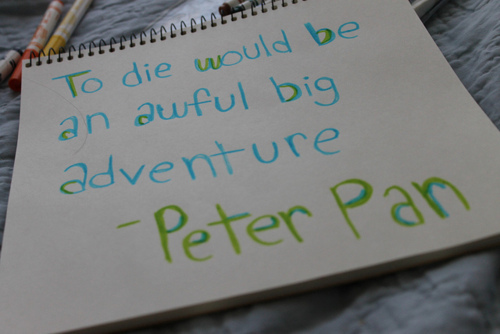 To die would be
an awful big
adventure
- Peter Pan